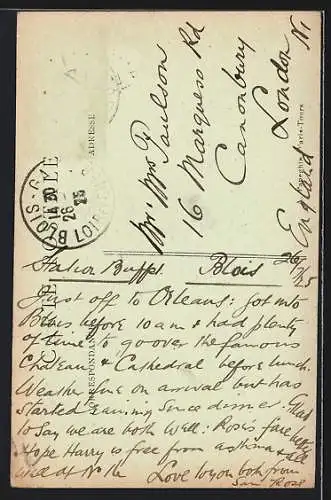 Mr & Mrs Paulson
16 Marquess Rd
Canonbury
London N1
England
CARTE POSTALE
CORRESPONDANCE
ADRESSE
BLOIS
LOIR
26
25
Station Buffet. Blois 26/ /25
Just off to Orleans: got into
Blois before 10 am & had plenty
of time to go over the famous
Chateau & Cathedral before lunch.
Weather fine on arrival but has
started raining since dinner. Glad
to say we are both well: Rose's face better
Hope Harry is free from asthma & all
well at No 16 Love to you both from
Sam Rose